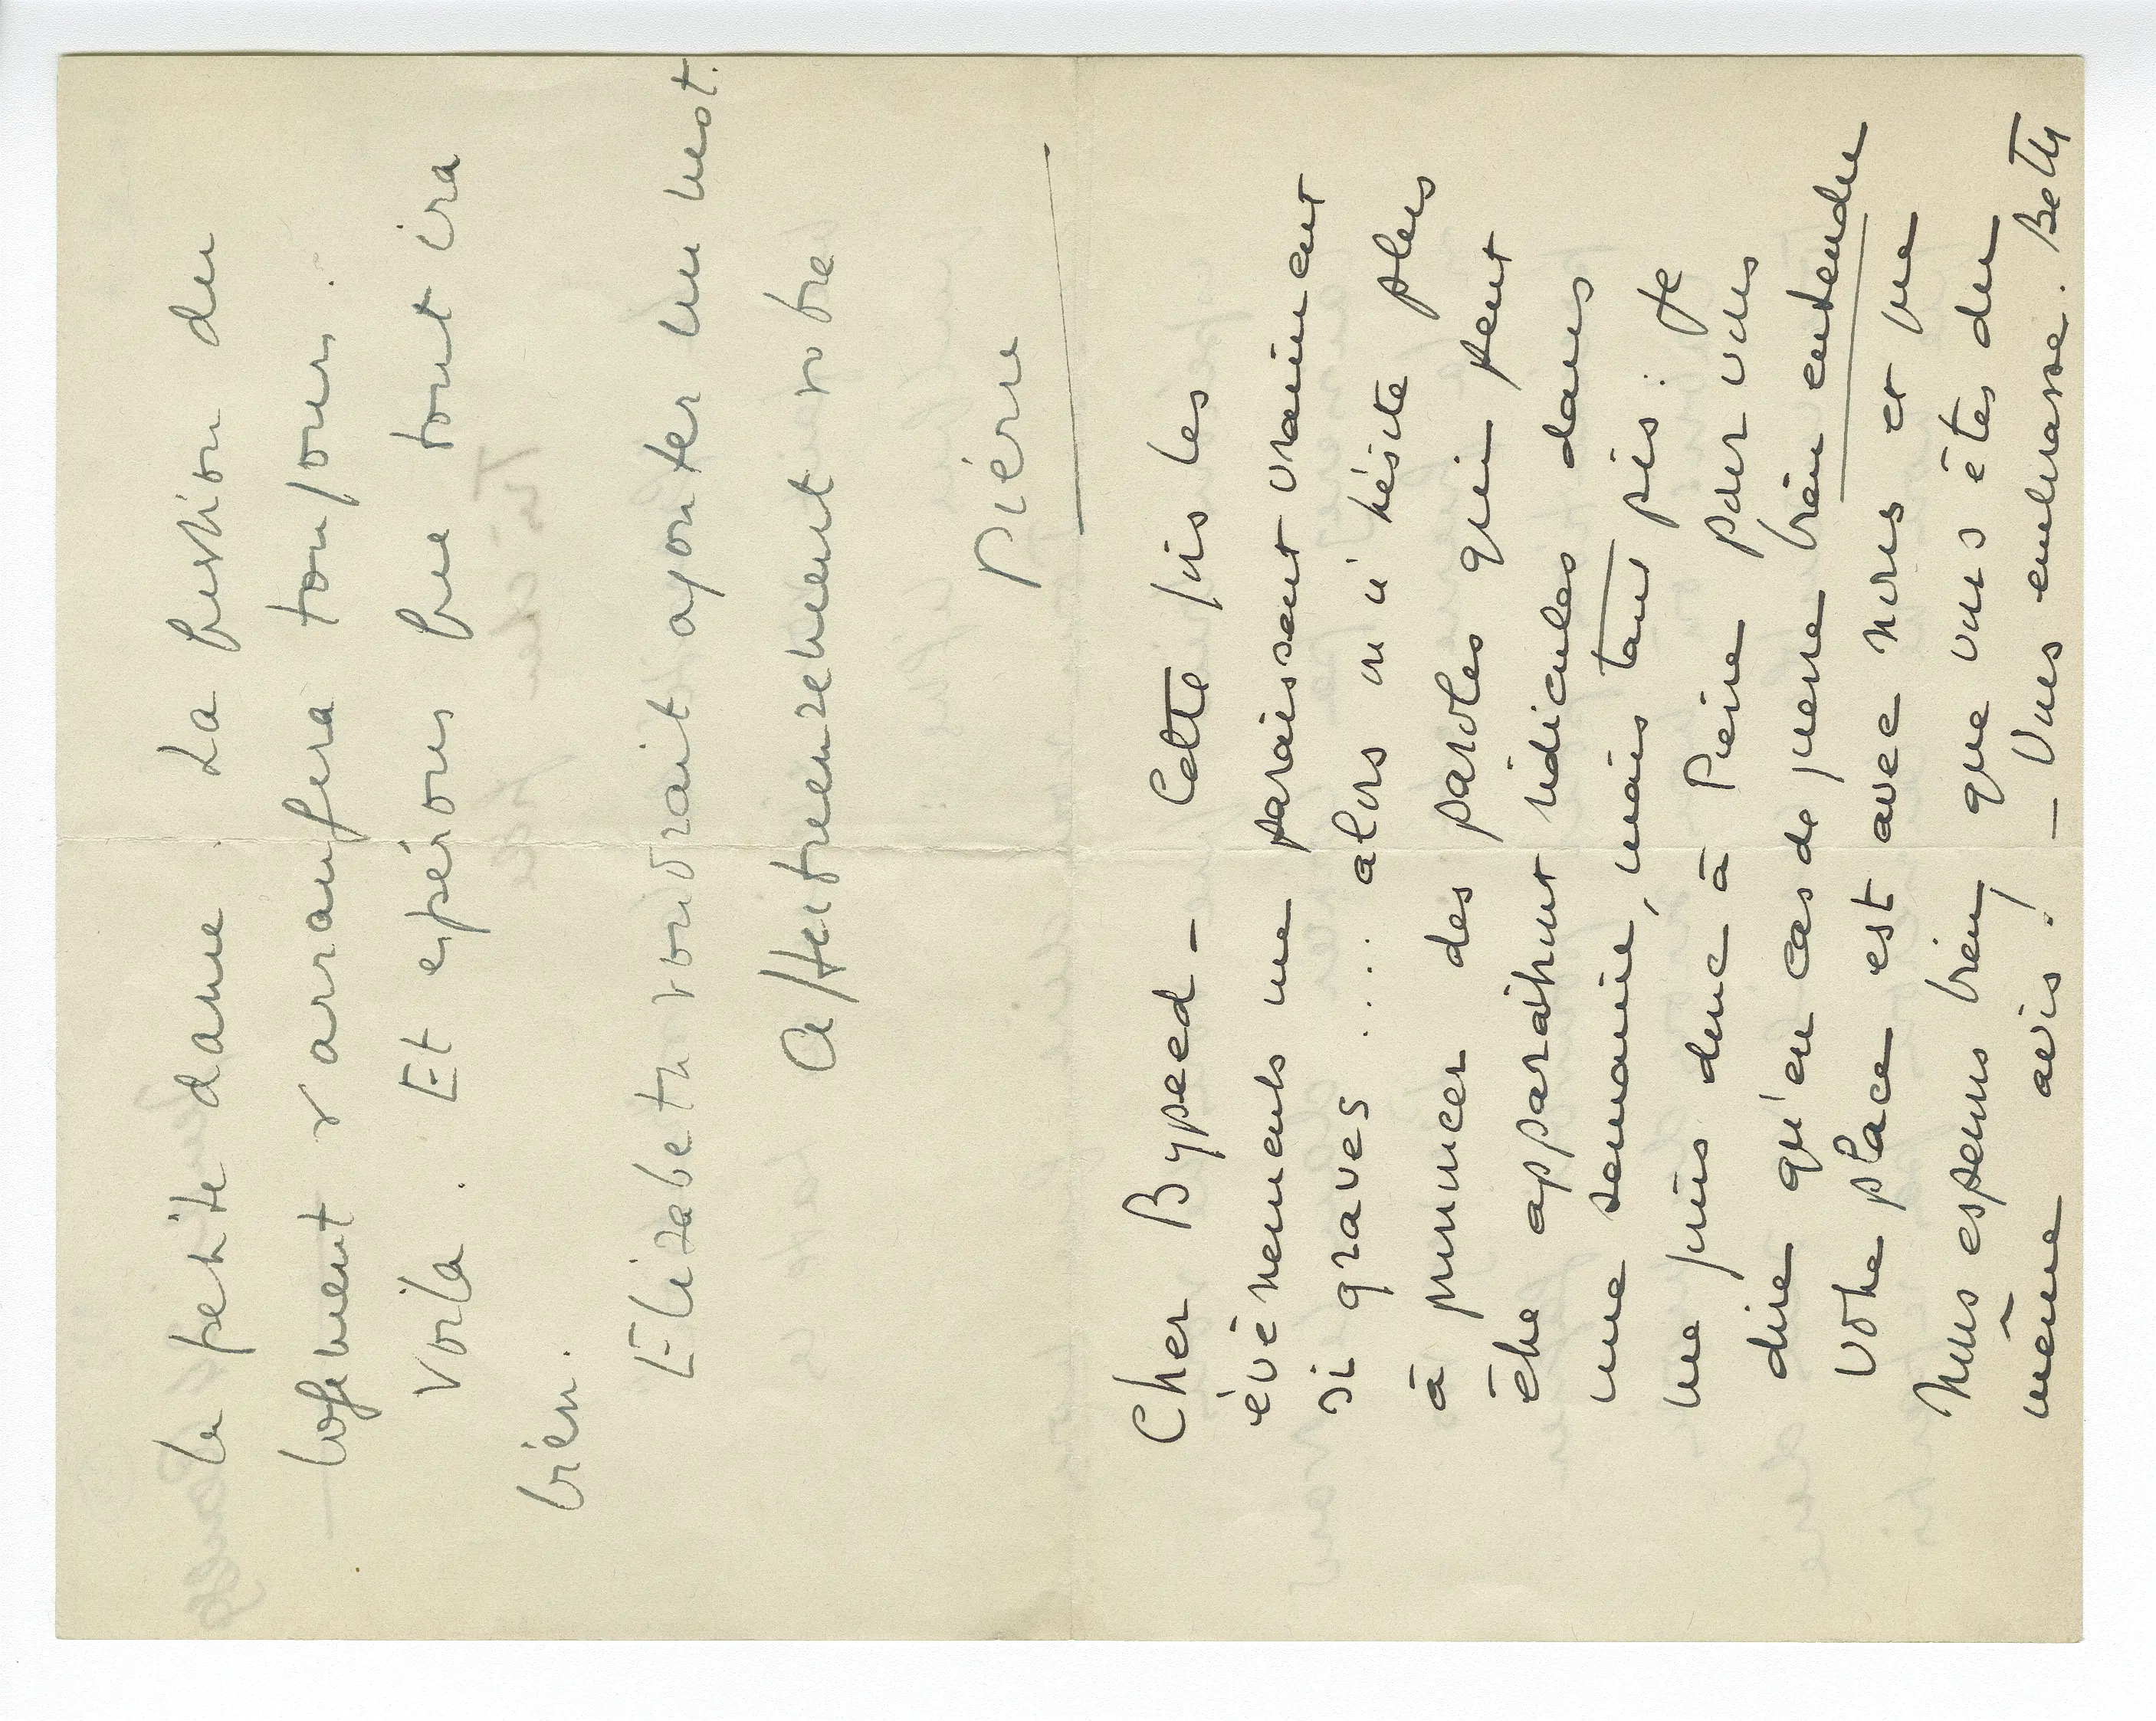 la petite dame. La question du
logement s'arrangera toujours.
Voilà. Et espérons que tout ira
bien.
Elizabeth voudrait ajouter un mot.
Affectueusement votre
Pierre
Cher Bypeed – Cette fois les
événements me paraissent vraiment
si graves ... alors on n'hésite plus
à prononcer des paroles qui peut
être apparaîtront ridicules dans
une semaine, mais tant pis : Je
me joins donc à Pierre pour vous
dire qu'en cas de guerre bien entendu
votre place est avec nous et que
nous espérons bien que vous êtes du
même avis ! – Vous embrasse. Betty